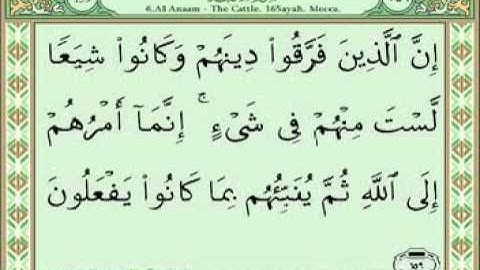 6.Al Anaam - The Cattle. 165ayah. Mecca.
إِنَّ ٱلَّذِينَ فَرَّقُوا۟ دِينَهُمْ وَكَانُوا۟ شِيَعًا
لَّسْتَ مِنْهُمْ فِى شَىْءٍ ۚ إِنَّمَآ أَمْرُهُمْ
إِلَى ٱللَّهِ ثُمَّ يُنَبِّئُهُم بِمَا كَانُوا۟ يَفْعَلُونَ
١٥٩